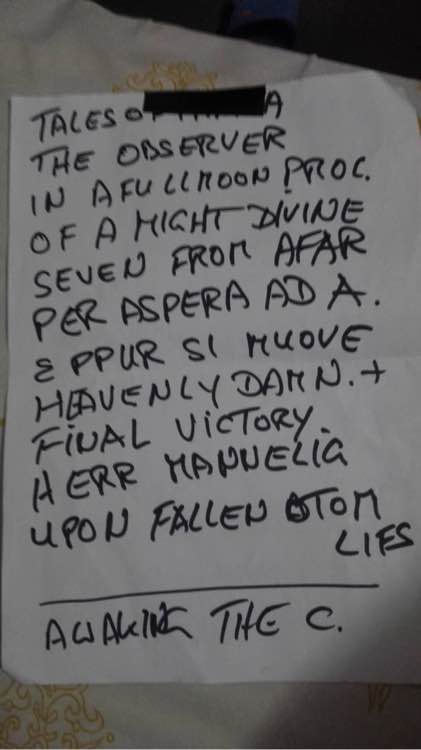 TALES O A
THE OBSERVER
IN A FULLMOON PROC.
OF A MIGHT DIVINE
SEVEN FROM AFAR
PER ASPERA AD A.
EPPUR SI MUOVE
HEAVENLY DAMN. +
FINAL VICTORY.
HERR MANNELIG
UPON FALLEN
LIES
AWAKING THE C.